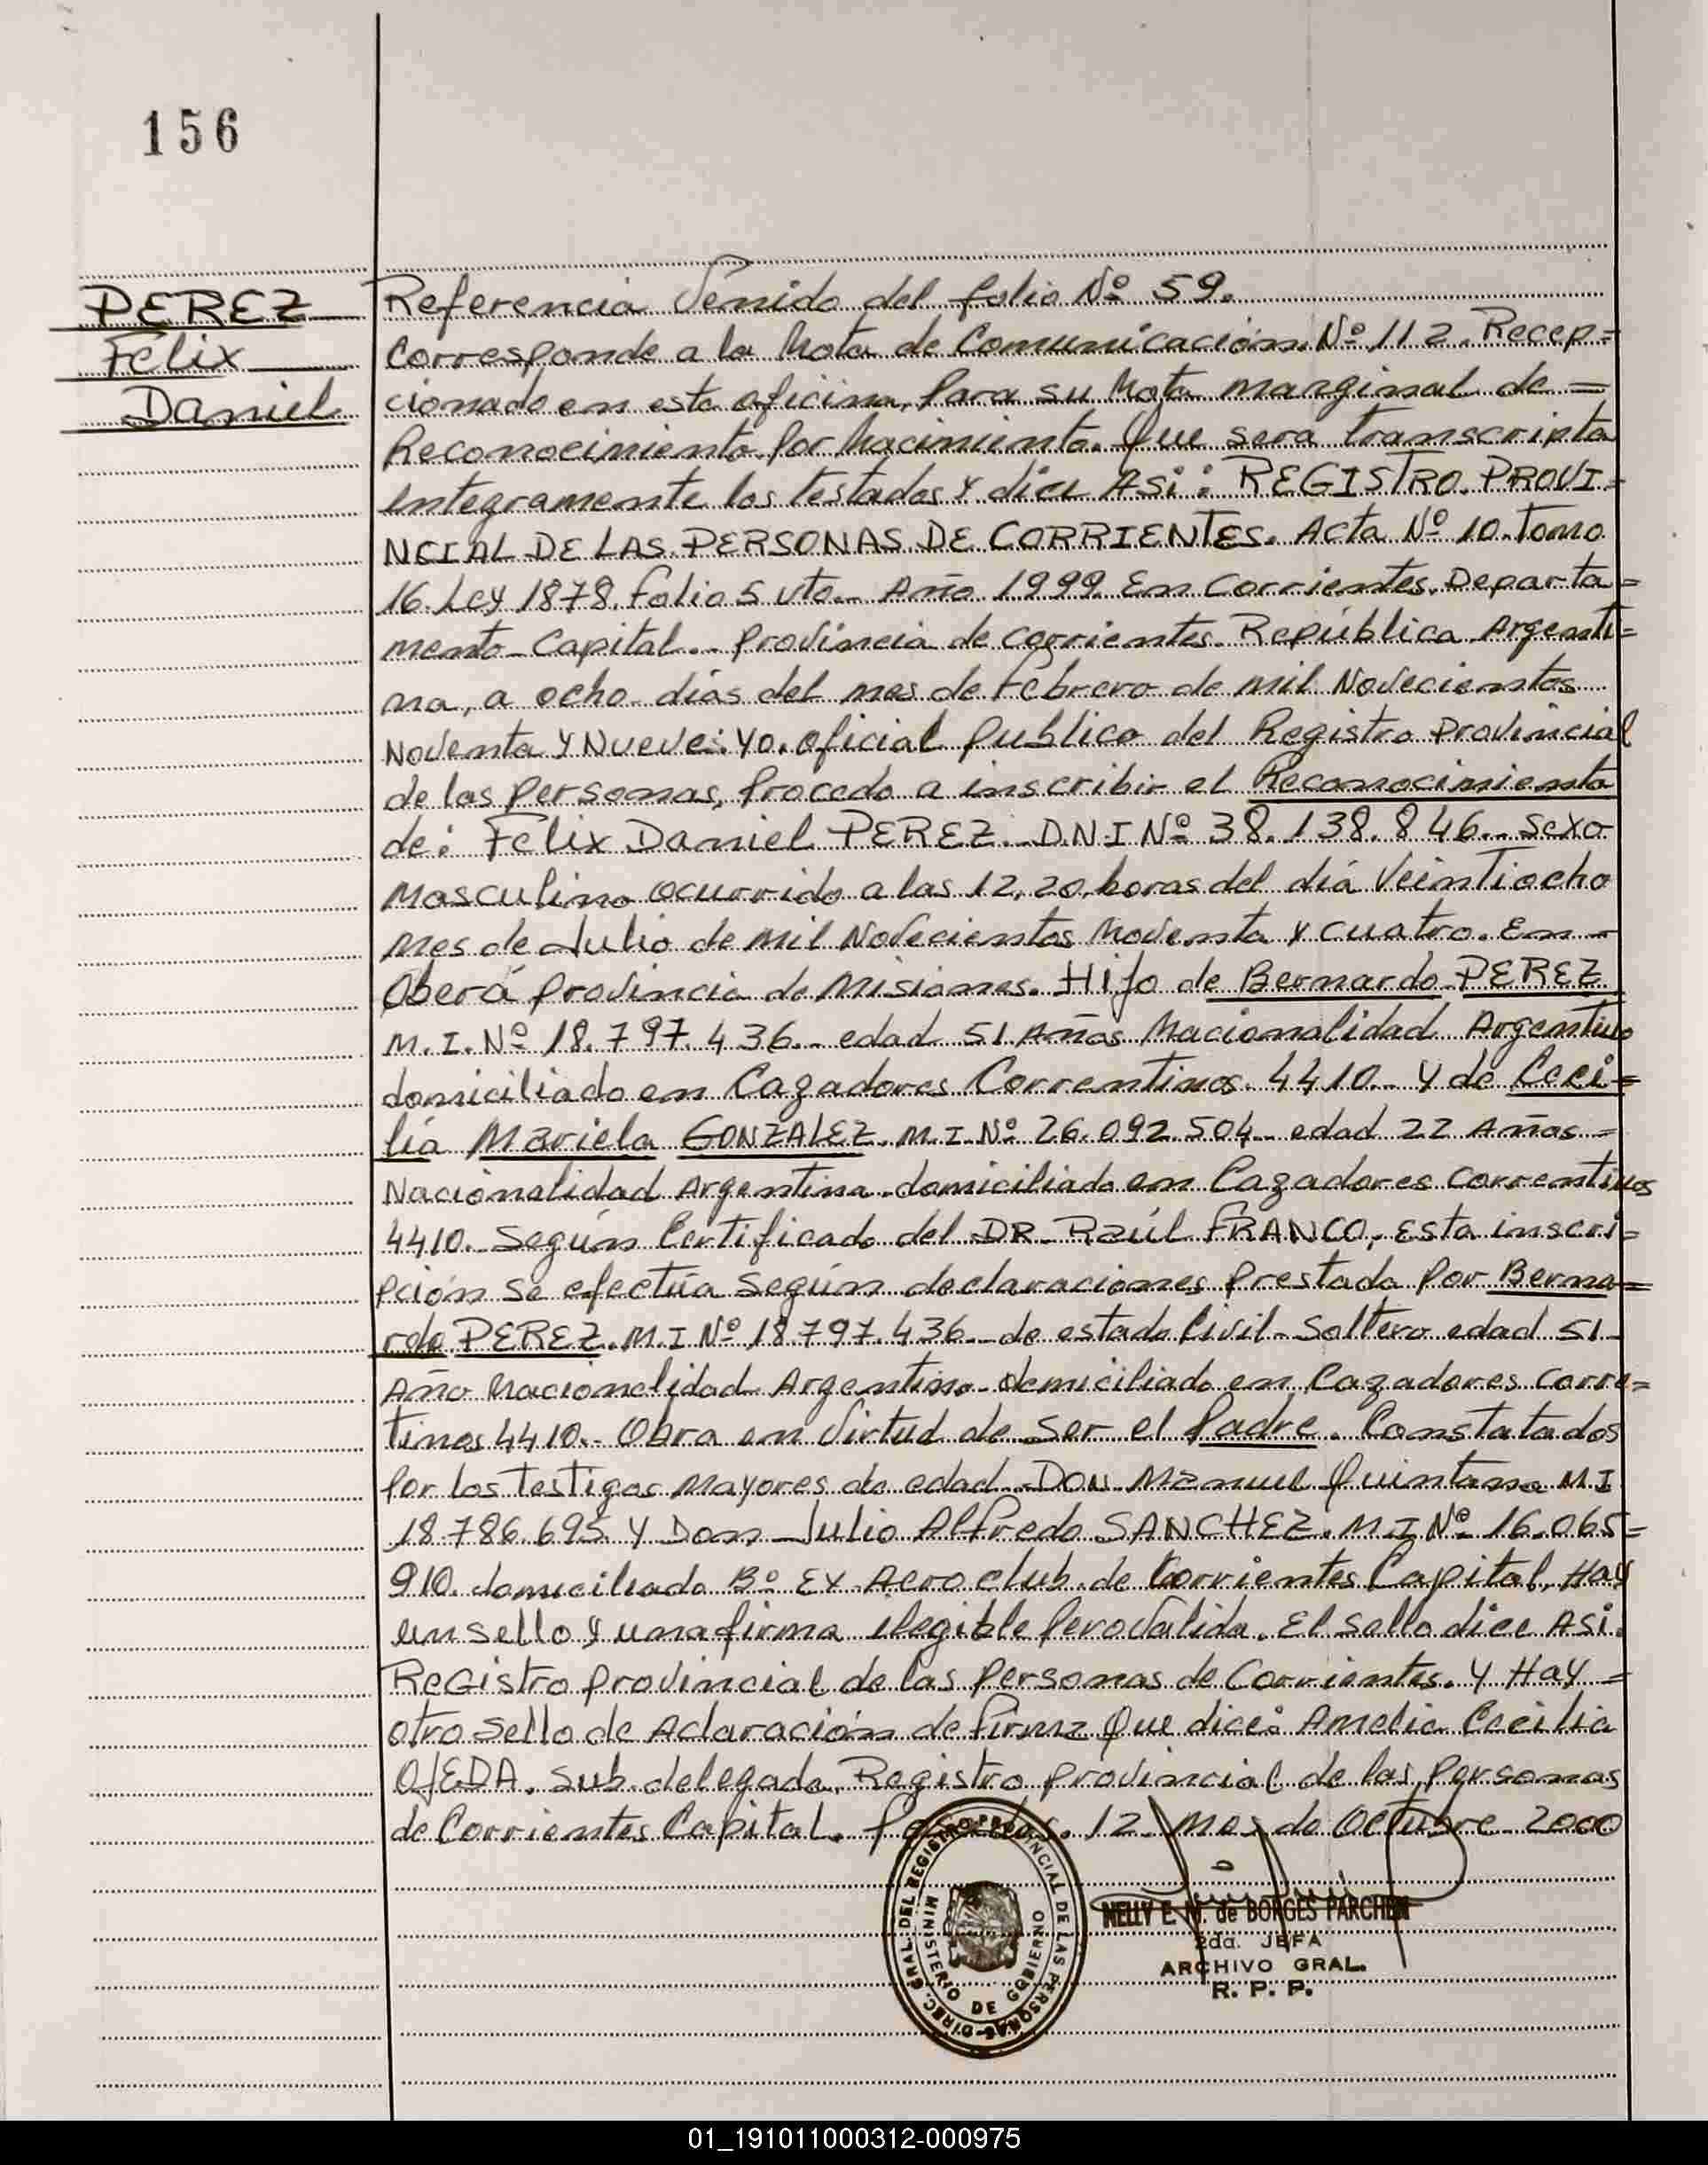 156
PEREZ
Felix
Daniel
Referencia Venido del folio Nº 59.
Corresponde a la Nota de Comunicación. Nº 112. Recep=
cionado en esta oficina, Para su Nota marginal de =
Reconocimiento. Por Nacimiento. Que sera transcripta
integramente los testados y dice Asi: REGISTRO. PROVI=
NCIAL DE LAS PERSONAS DE CORRIENTES. Acta Nº 10. Tomo
16. Ley 1878. folio 5 vto. Año 1999. En Corrientes. Departa=
mento Capital.. Provincia de Corrientes. República Argenti=
na, a ocho días del mes de Febrero de mil Novecientos
Noventa y Nueve: yo. oficial publico del Registro Provincial
de las Personas, Procedo a inscribir el Reconocimiento
de: Felix Daniel PEREZ. D.N.I Nº 38.138.846.. sexo
Masculino ocurrido a las 12,20 horas del diá Veintiocho
Mes de Julio de Mil Novecientos Noventa y cuatro. En -
Oberá Provincia de Misiones. Hijo de Bernardo PEREZ
M.I. Nº 18.797.436.. edad 51 Años Nacionalidad Argentino
domiciliado en Cazadores Correntinos. 4410.. Y de Ceci=
lia Mariela GONZALEZ. M.I. Nº 26.092.504.. edad 22 Años =
Nacionalidad Argentina. domiciliado en Cazadores Correntinos
4410. Según Certificado del DR. Raúl FRANCO, esta inscri=
pción se efectúa según declaraciones Prestada Por Berna=
rdo PEREZ. M.I Nº 18.797.436.. de estado Civil - Soltero edad 51
Año Nacionalidad Argentino domiciliado en Cazadores Corre=
tinos 4410.. Obra en Virtud de ser el Padre. Constatados
Por los Testigos Mayores de edad. Don Manuel Quintana M.I
18.786.695. Y Don Julio Alfredo SANCHEZ. M.I Nº 16.065=
910. domiciliado Bº Ex Aero club. de Corrientes Capital. Hay
un sello y una firma ilegible Pero Válida. El sello dice Asi.
Registro Provincial de las Personas de Corrientes. Y Hay =
otro sello de Aclaración de firma Que dice: Amelia Cecilia
OJEDA. sub. delegada. Registro Provincial de las, Personas
de Corrientes Capital. 12. Mes de Octubre 2000
DIREC. GRAL. DEL REGISTRO PROVINCIAL DE LAS PERSONAS
MINISTERIO DE GOBIERNO
NELLY E. M. de BORGES PARCHEN
2da. JEFA
ARCHIVO GRAL.
R. P. P.
01_191011000312-000975